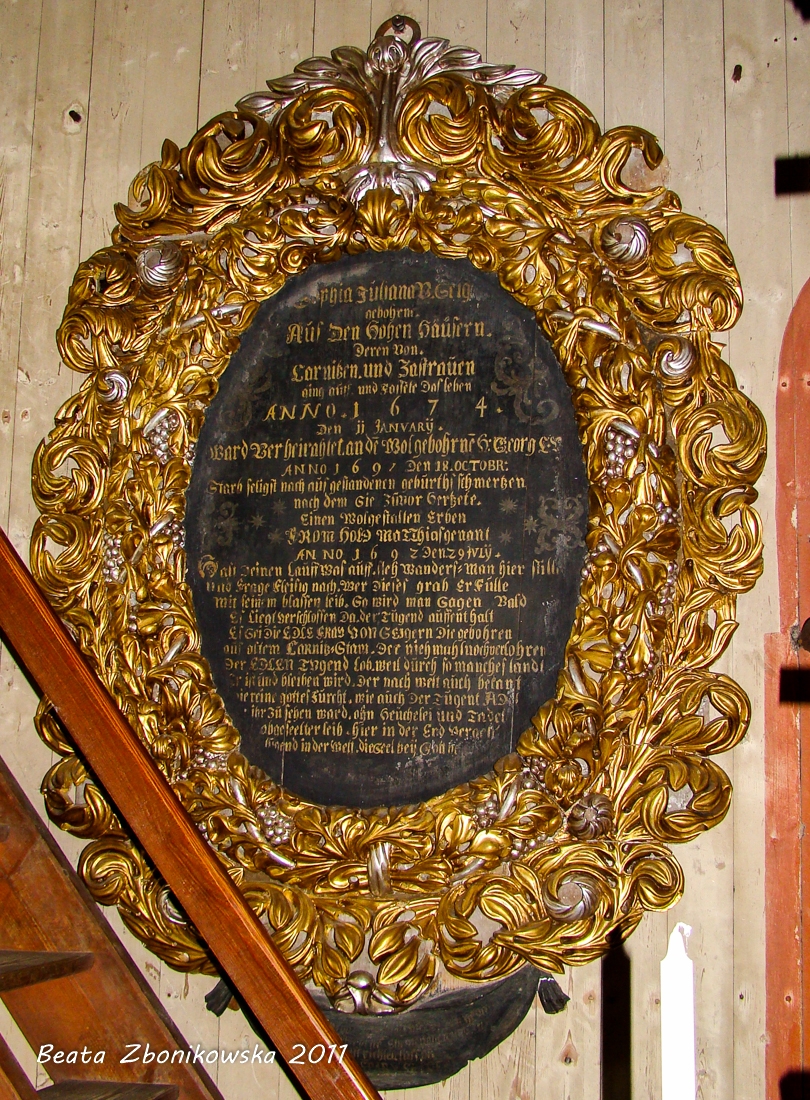 Sophia Juliana V. Seig
gebohrn.
Auss Den Hohen Haüsern.
Deren Von.
Carnitzen. und Zastraüen
ging auff. und Fassete Das leben
ANNO. 1 6 7 4.
Den jj JANVARÿ.
ward Verheirahtet. an dē Wolgebohrnē H. Georg
ANNO 1 6 9 / Den 18. OCTOBR:
Starb seligst nach auss gestandenen gebürths schmertzen
nach dem Sie Züvor Hertzete.
Einen Wolgestalten Erben
FROM HolD MaTThias genant
ANNO. 1 6 9 2 Den 29 IVLÿ.
Deinen Lauff Was auff. steh Wanders-Man hier still
Und Frage fleisig nach, Wer Dieses grab Erfülle
mit seinem blassen leib. So wird man Sagen Bald
Es Liegt Verschlossen Da, der Tügend auffenthalt
Es Sei Die EDLE FRAV VON SEIGern Die gebohren
auss altem Carnitz-Stam. Der niehmahls noch verlohren
Der EDLEN TVgend lob, weil dürch so manches landt
ist und bleiben wird. Der nach welt auch bekant
reine gottes fürcht, wie auch Der Tügent
ihr Zü sehen ward, ohn Heüchelei und Tadel
abgeseelter leib. hier in der Erd
in der Welt, die Seel beÿ Gott
Beata Zbonikowska 2011